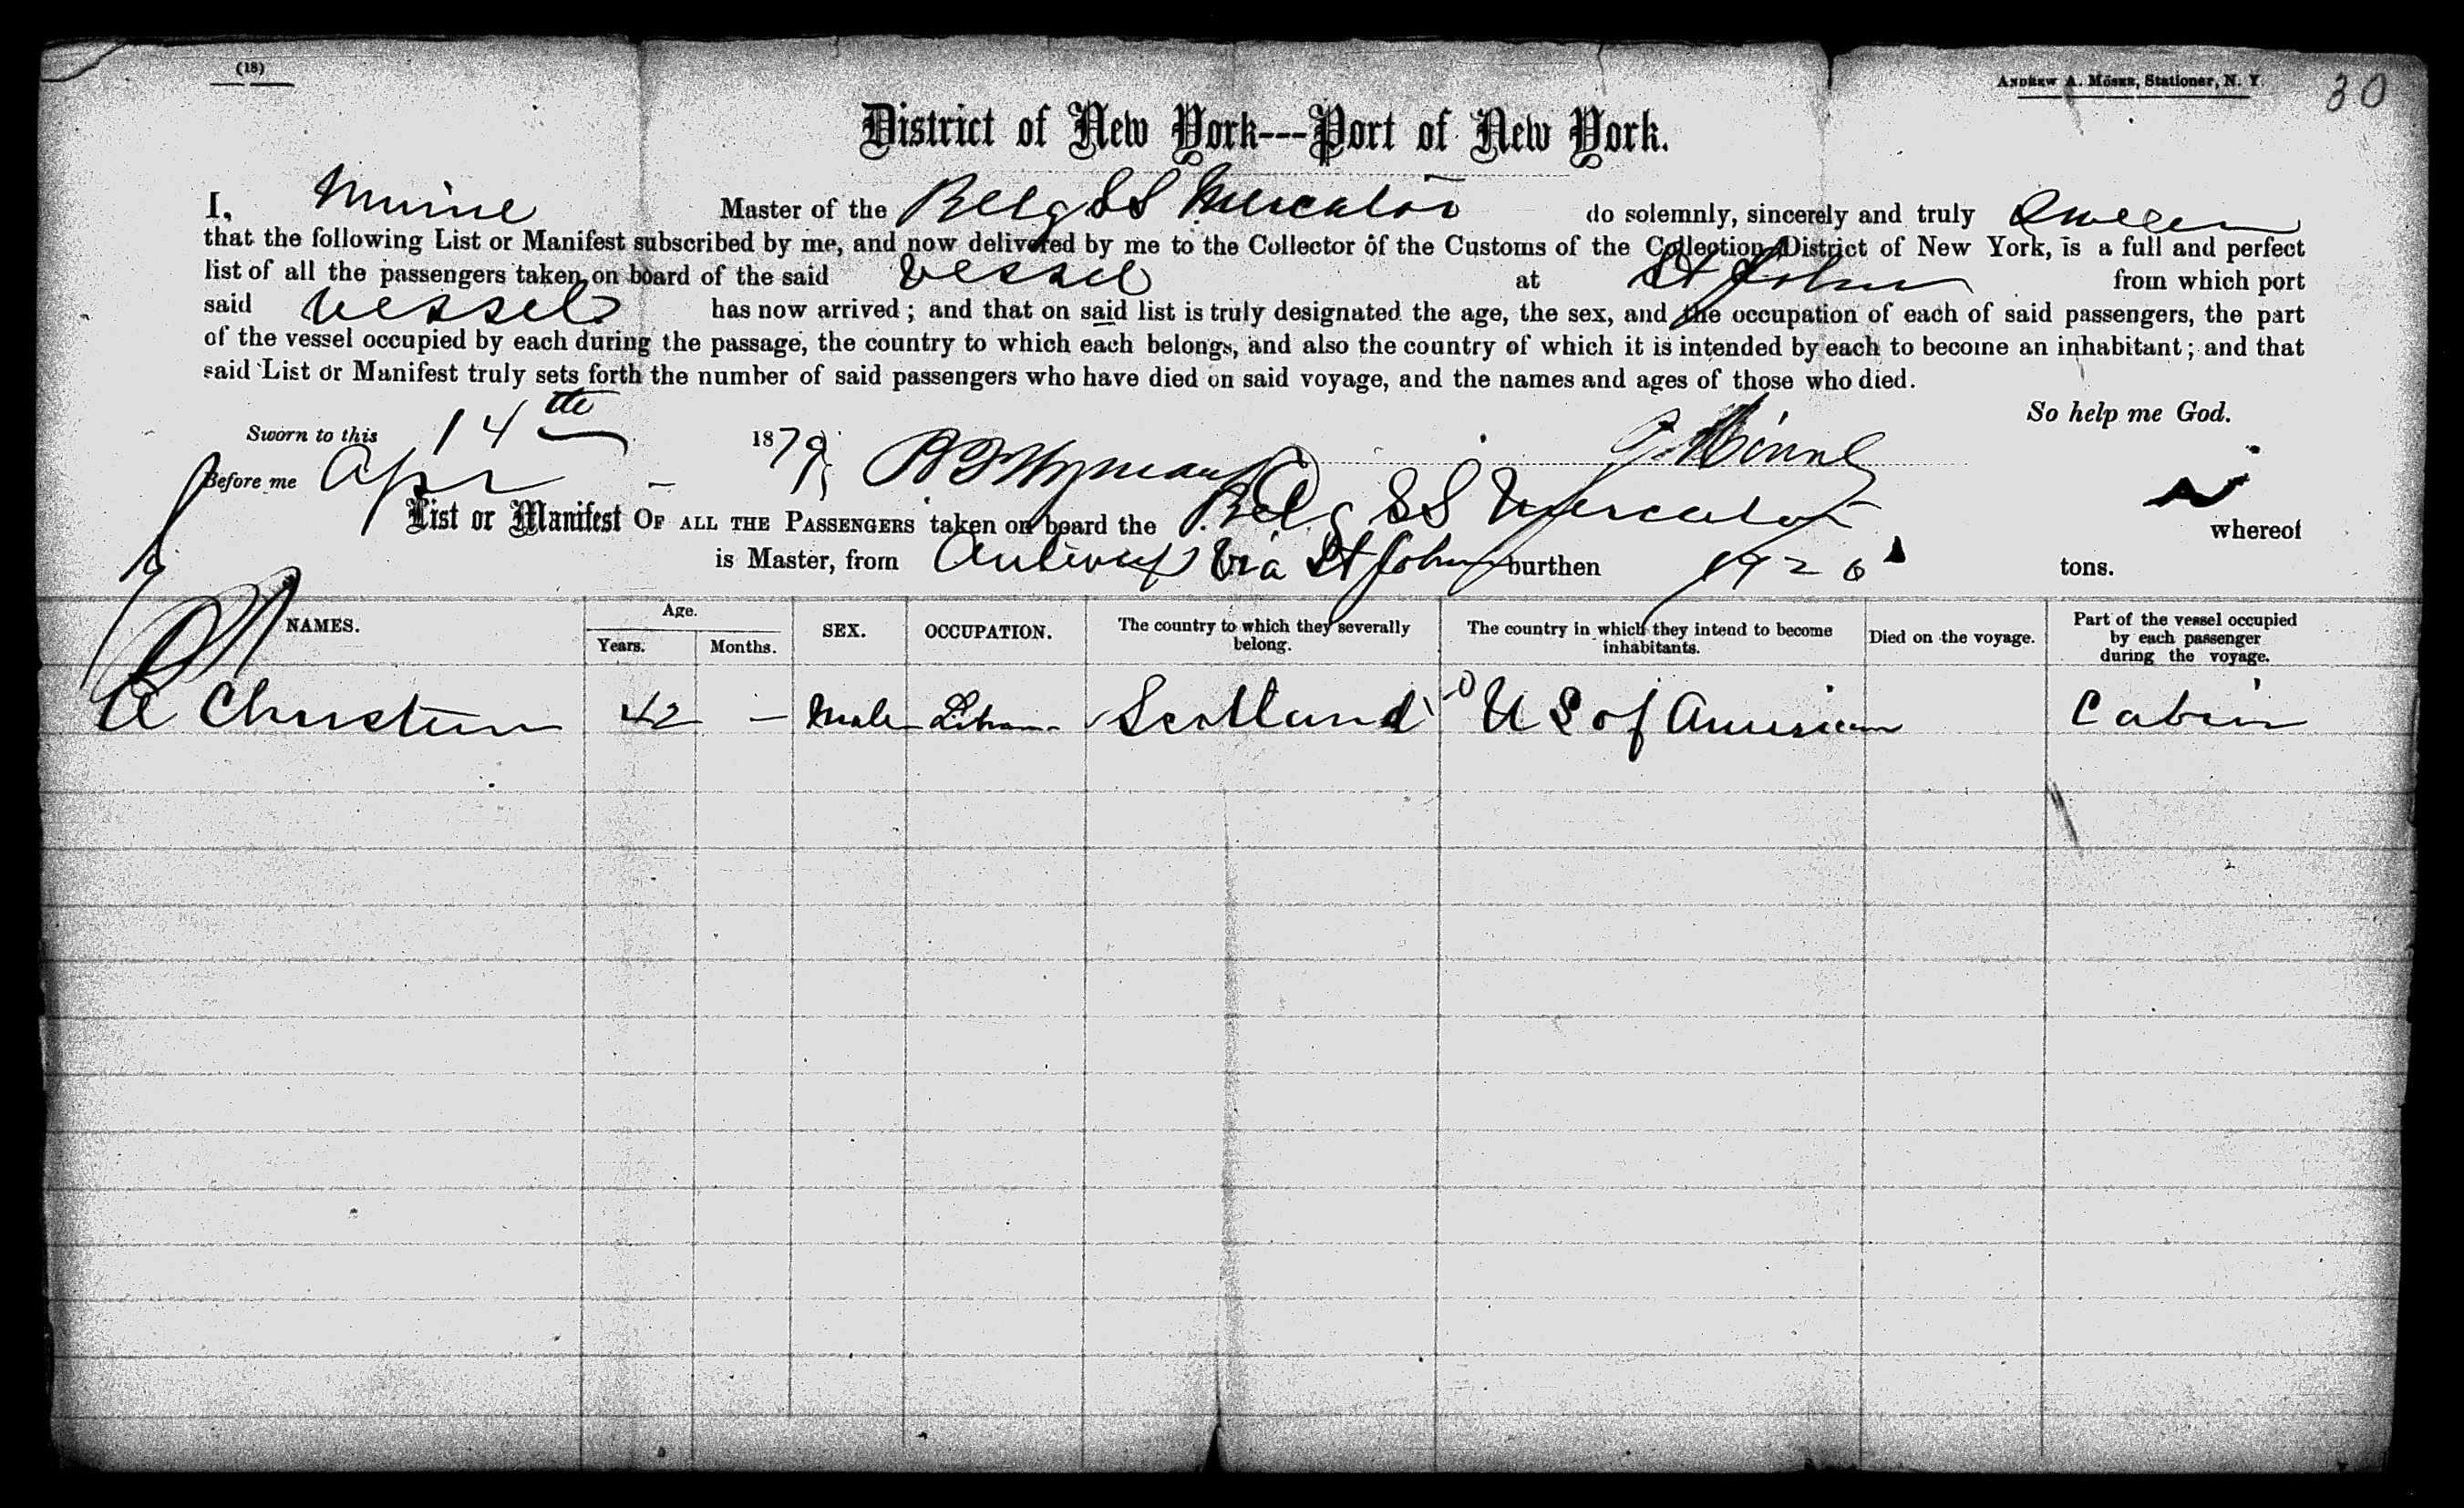 (18)
ANDREW A. MÖSER, Stationer, N. Y.
30
District of New York---Port of New York.
I, Master of the Belg SS Mercator do solemnly, sincerely and truly Swear
that the following List or Manifest subscribed by me, and now delivered by me to the Collector of the Customs of the Collection District of New York, is a full and perfect
list of all the passengers taken on board of the said vessel at St John from which port
said vessel has now arrived; and that on said list is truly designated the age, the sex, and the occupation of each of said passengers, the part
of the vessel occupied by each during the passage, the country to which each belongs, and also the country of which it is intended by each to become an inhabitant; and that
said List or Manifest truly sets forth the number of said passengers who have died on said voyage, and the names and ages of those who died.
So help me God.
Sworn to this 14th 1879
Before me Apr
List or Manifest OF ALL THE PASSENGERS taken on board the Belg SS Mercator whereof
is Master, from Antwerp Via St John burthen tons.
NAMES. Age. Years. Months. SEX. OCCUPATION. The country to which they severally belong. The country in which they intend to become inhabitants. Died on the voyage. Part of the vessel occupied by each passenger during the voyage.
A 42 — Male Scotland U S of America Cabin